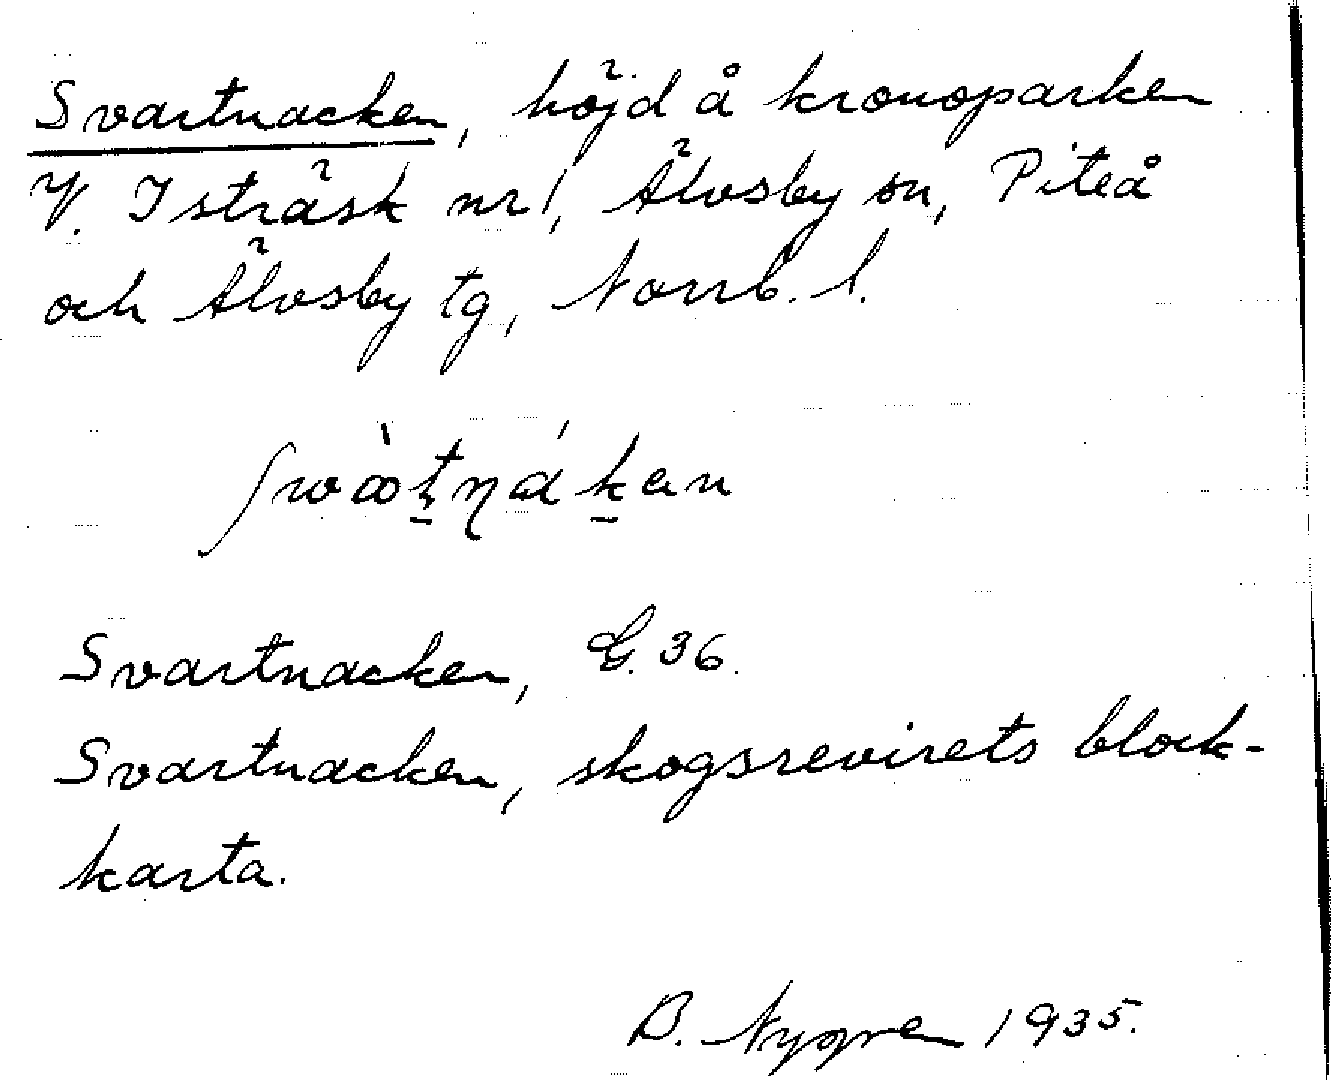 Svartnacken, höjd å kronoparken
V. Isträsk nr 1, Älvsby sn, Piteå
och Älvsby tg, Norrb. l.
Svartnacken, G. 36.
Svartnacken, skogsrevirets block-
karta.
B. Nygren 1935.